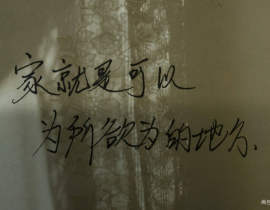 家就是可以
为所欲为的地方.